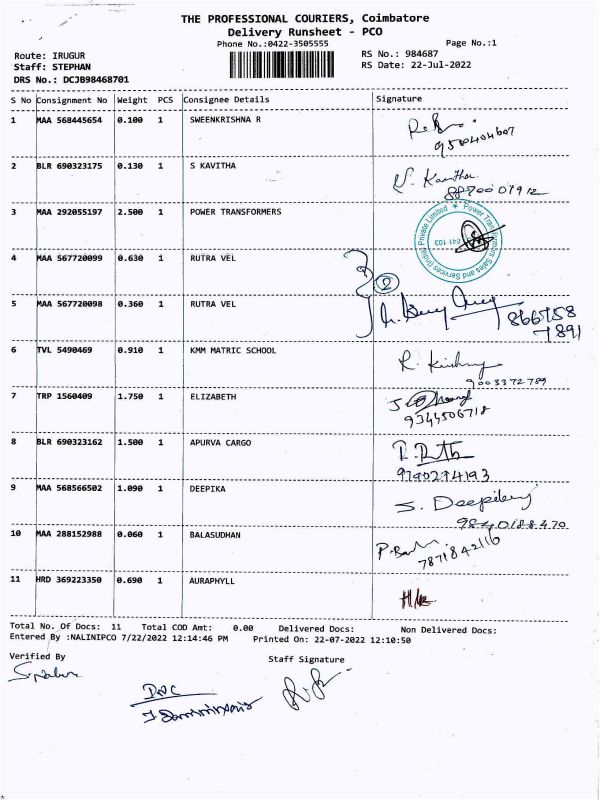 THE PROFESSIONAL COURIERS, Coimbatore
Delivery Runsheet - PCO
Phone No.:0422-3505555
Page No.:1
Route: IRUGUR
Staff: STEPHAN
DRS No.: DCJB98468701
RS No.: 984687
RS Date: 22-Jul-2022
S No Consignment No Weight PCS Consignee Details Signature
1 MAA 568445654 0.100 1 SWEENKRISHNA R
2 BLR 690323175 0.130 1 S KAVITHA
3 MAA 292055197 2.500 1 POWER TRANSFORMERS
Power Transformers Sales and Services (India) Private Limited
641 103
4 MAA 567720099 0.630 1 RUTRA VEL
2
5 MAA 567720098 0.360 1 RUTRA VEL
866758
7891
6 TVL 5490469 0.910 1 KMM MATRIC SCHOOL
9003372789
7 TRP 1560409 1.750 1 ELIZABETH
9344506718
8 BLR 690323162 1.500 1 APURVA CARGO
9790294193
9 MAA 568566502 1.090 1 DEEPIKA
S. Deepika
9840188470
10 MAA 288152988 0.060 1 BALASUDHAN
7871842116
11 HRD 369223350 0.690 1 AURAPHYLL
Total No. Of Docs: 11 Total COD Amt: 0.00 Delivered Docs: Non Delivered Docs:
Entered By :NALINIPCO 7/22/2022 12:14:46 PM Printed On: 22-07-2022 12:10:50
Verified By Staff Signature